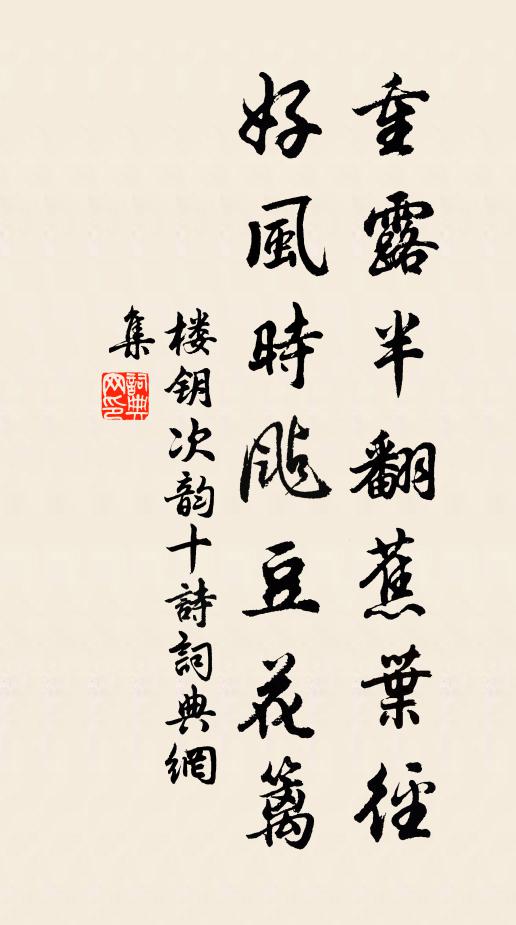 重露半翻蕉葉徑
好風時颭豆花籬
楼钥次韵十詩詞典網
集
詞典
网印